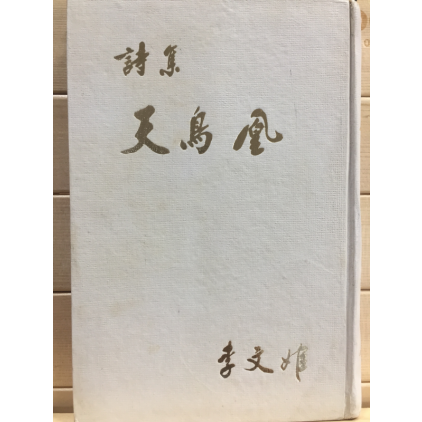 詩集
天鳥凰
李文雄